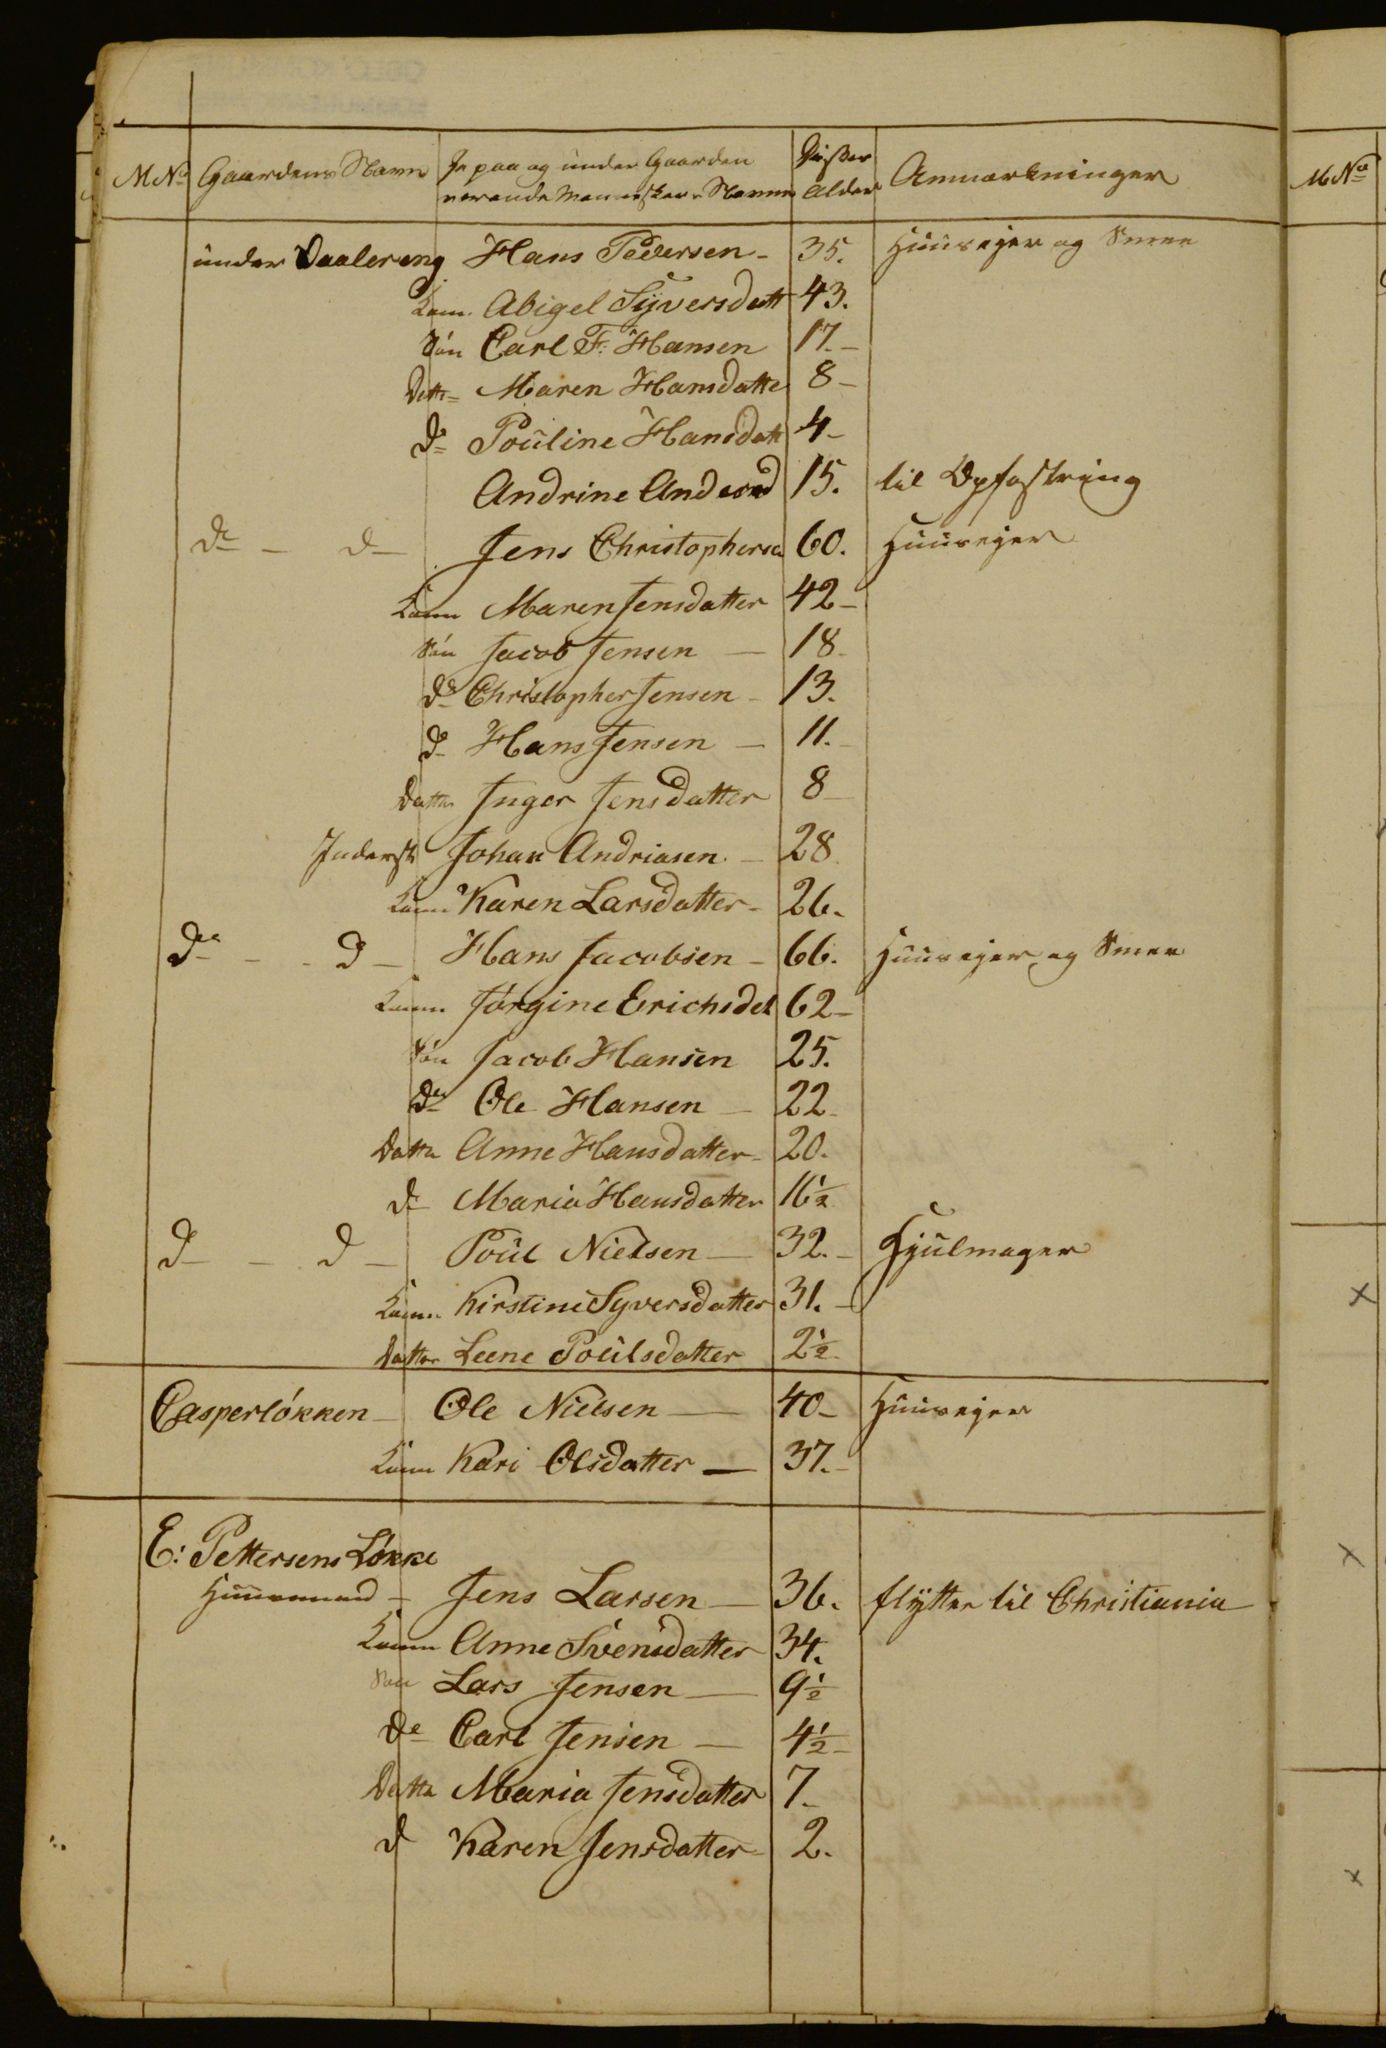 M No Gaardens Navn De paa og under Gaarden Disses Anmærkninger M No
værende Menneskers Navne Alder
under Vaalereng Hans Pedersen - 35. Huusejer og Smed
Kone Abigel Syversdatt 43.
Søn Carl F: Hansen 17. -
Datter Maren Hansdatte 8 -
Do Pouline Hansdatt 4 -
Andrine Andersd 15. til Opfostring
Do - Do - Jens Christophersen 60. Huusejer
Kone Maren Jensdatter 42 -
Søn Jacob Jensen - 18 -
Do Christopher Jensen - 13.
Do Hans Jensen - 11. -
Datter Inger Jensdatter 8 -
Inderst Johan Andriasen - 28
Kone Karen Larsdatter - 26.
Do - - Do - Hans Jacobsen - 66. Huusejer og Smed
Kone Jørgine Erichsdat 62 -
Søn Jacob Hansen 25.
Do Ole Hansen - 22 -
Datter Anne Hansdatter - 20.
Do Maria Hansdatter 16½
Do - - Do - Poul Nielsen - 32. - Hjulmager
Kone Kirstine Syversdatter 31. -
Datter Leene Poulsdatter 2½ -
Casperløkken - Ole Nielsen - 40 - Huusejer
Kone Kari Olsdatter - 37. -
E: Pettersens Løkke
Huusmand - Jens Larsen - 36. flytter til Christiania
Kone Anne Svensdatter 34.
Søn Lars Jensen - 9½
Do Carl Jensen - 4½ -
Datter Maria Jensdatter 7. -
Do Karen Jensdatter - 2.